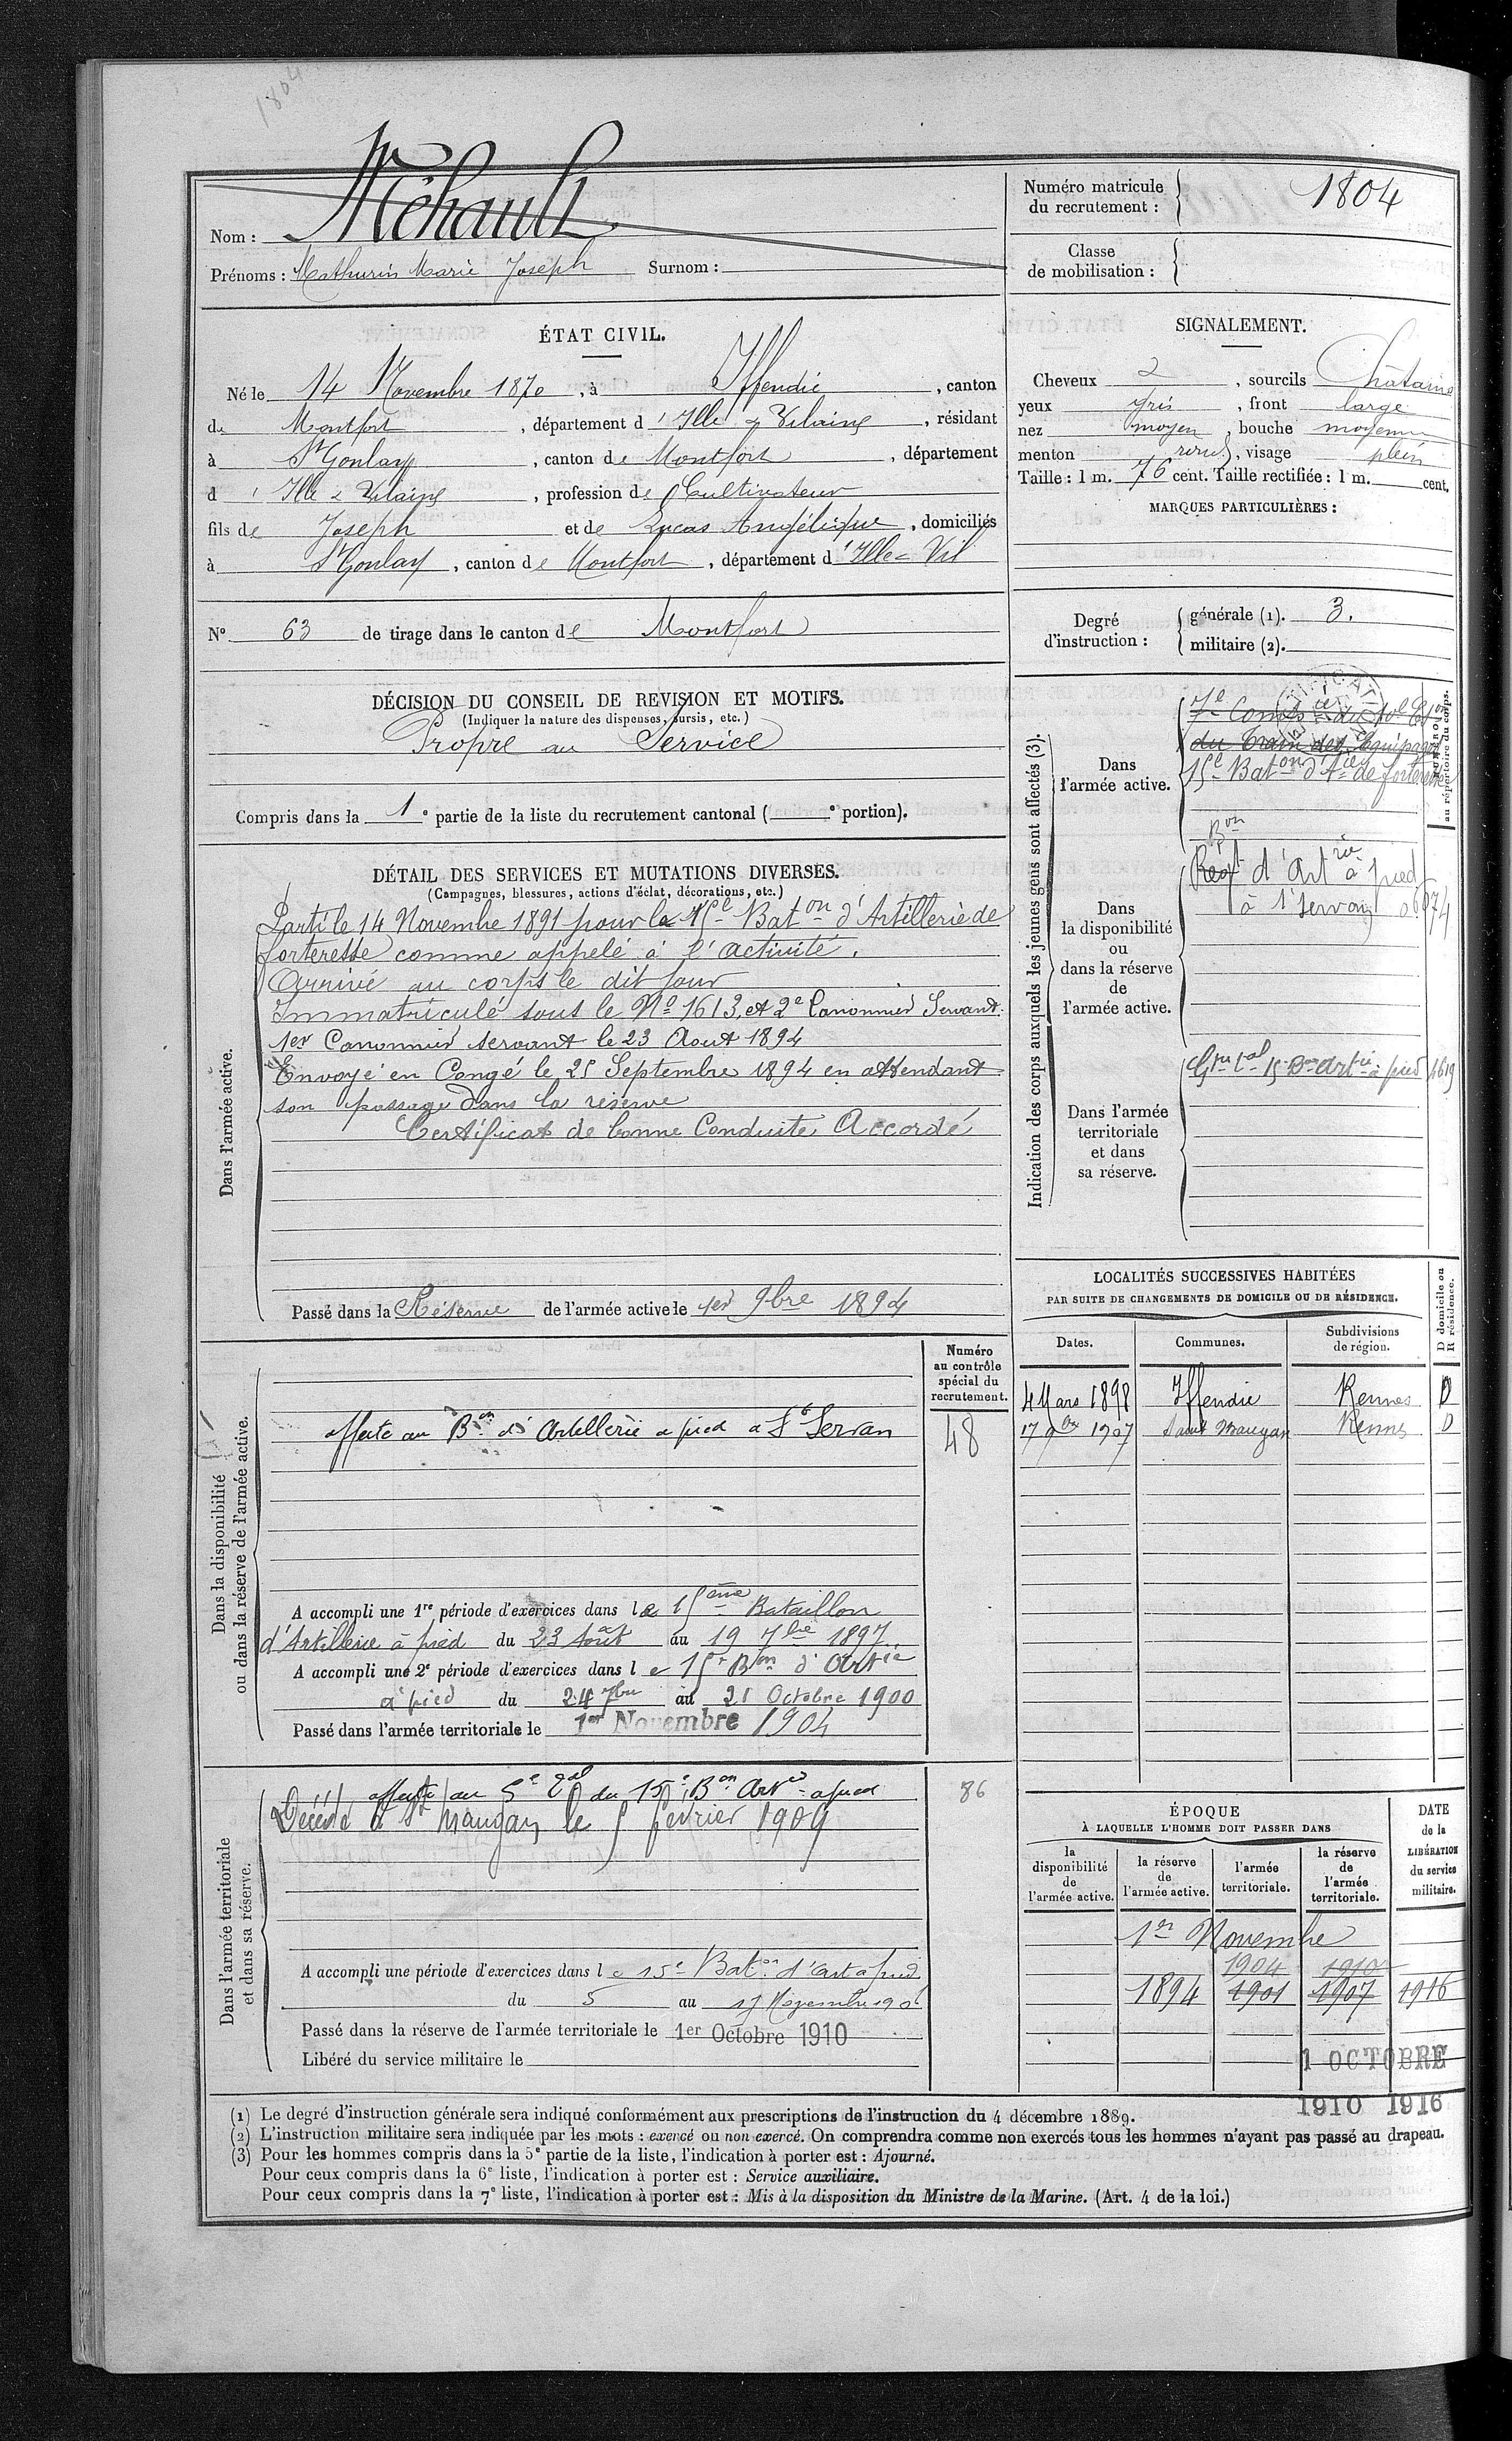 1804
Nom : Méhault
Prénoms : Mathurin Marie Joseph Surnom :
Numéro matricule du recrutement : 1804
Classe de mobilisation :
ÉTAT CIVIL.
Né le 14 Novembre 1870, à Iffendic, canton
de Montfort, département d'Ille & Vilaine, résidant
à St Gonlay, canton de Montfort, département
d'Ille & Vilaine, profession de Cultivateur
fils de Joseph et de Lucas Angélique, domiciliés
à St Gonlay, canton de Montfort, département d'Ille & Vil
N° 63 de tirage dans le canton de Montfort
SIGNALEMENT.
Cheveux , sourcils Châtains
yeux gris, front large
nez moyen, bouche moyenne
menton rond, visage plein
Taille : 1 m. 76 cent. Taille rectifiée : 1 m. cent.
MARQUES PARTICULIÈRES :
Degré d'instruction : générale (1). 3.
militaire (2).
DÉCISION DU CONSEIL DE REVISION ET MOTIFS.
(Indiquer la nature des dispenses, sursis, etc.)
Propre au Service
Compris dans la 1e partie de la liste du recrutement cantonal ( e portion).
DÉTAIL DES SERVICES ET MUTATIONS DIVERSES.
(Campagnes, blessures, actions d'éclat, décorations, etc.)
Dans l'armée active.
Parti le 14 Novembre 1891 pour le 15e Baton d'Artillerie de
forteresse comme appelé à l'activité.
Arrivé au corps le dit jour
Immatriculé sous le No 1613, et 2e Canonnier Servant.
1er Canonnier servant le 23 Aout 1894
Envoyé en Congé le 25 Septembre 1894 en attendant
son passage dans la réserve
Certificat de bonne Conduite Accordé
Passé dans la Réserve de l'armée active le 1er 9bre 1894
Indication des corps auxquels les jeunes gens sont affectés (3).
au répertoire du corps.
Dans l'armée active.
du train des Equipages
15e Baton d'Artie de forteresse
Dans la disponibilité ou dans la réserve de l'armée active.
Bon
Regt d'Artrie à pied
à St Servan
Dans l'armée territoriale et dans sa réserve.
15 Bon Artie à pied 1619
LOCALITÉS SUCCESSIVES HABITÉES
PAR SUITE DE CHANGEMENTS DE DOMICILE OU DE RÉSIDENCE.
Dates. Communes. Subdivisions de région. D domicile ou R résidence.
4 Mars 1898 Iffendic Rennes D
17 9bre 1907 Saint Maugan Rennes D
Dans la disponibilité ou dans la réserve de l'armée active.
Numéro au contrôle spécial du recrutement.
affecte au Bon d'Artillerie a pied a St Servan 48
A accompli une 1re période d'exercices dans le 15ème Bataillon
d'Artillerie à pied du 23 Août au 19 7bre 1897
A accompli une 2e période d'exercices dans le 15e Bon d'Artie
à pied du 24 7bre au 21 Octobre 1900
Passé dans l'armée territoriale le 1er Novembre 1904
Dans l'armée territoriale et dans sa réserve.
affecte au du 15e Bon Artie a pied 86
Décédé à St Maugan le 5 février 1909
A accompli une période d'exercices dans le 15e Baton d'art a pied
du 5 au
Passé dans la réserve de l'armée territoriale le 1er Octobre 1910
Libéré du service militaire le
ÉPOQUE
À LAQUELLE L'HOMME DOIT PASSER DANS
la disponibilité de l'armée active. la réserve de l'armée active. l'armée territoriale. la réserve de l'armée territoriale. DATE de la LIBÉRATION du service militaire.
1er Novembre
1904 1910
1894 1901 1907 1916
1 OCTOBRE
1910 1916
(1) Le degré d'instruction générale sera indiqué conformément aux prescriptions de l'instruction du 4 décembre 1889.
(2) L'instruction militaire sera indiquée par les mots : exercé ou non exercé. On comprendra comme non exercés tous les hommes n'ayant pas passé au drapeau.
(3) Pour les hommes compris dans la 5e partie de la liste, l'indication à porter est : Ajourné.
Pour ceux compris dans la 6e liste, l'indication à porter est : Service auxiliaire.
Pour ceux compris dans la 7e liste, l'indication à porter est : Mis à la disposition du Ministre de la Marine. (Art. 4 de la loi.)